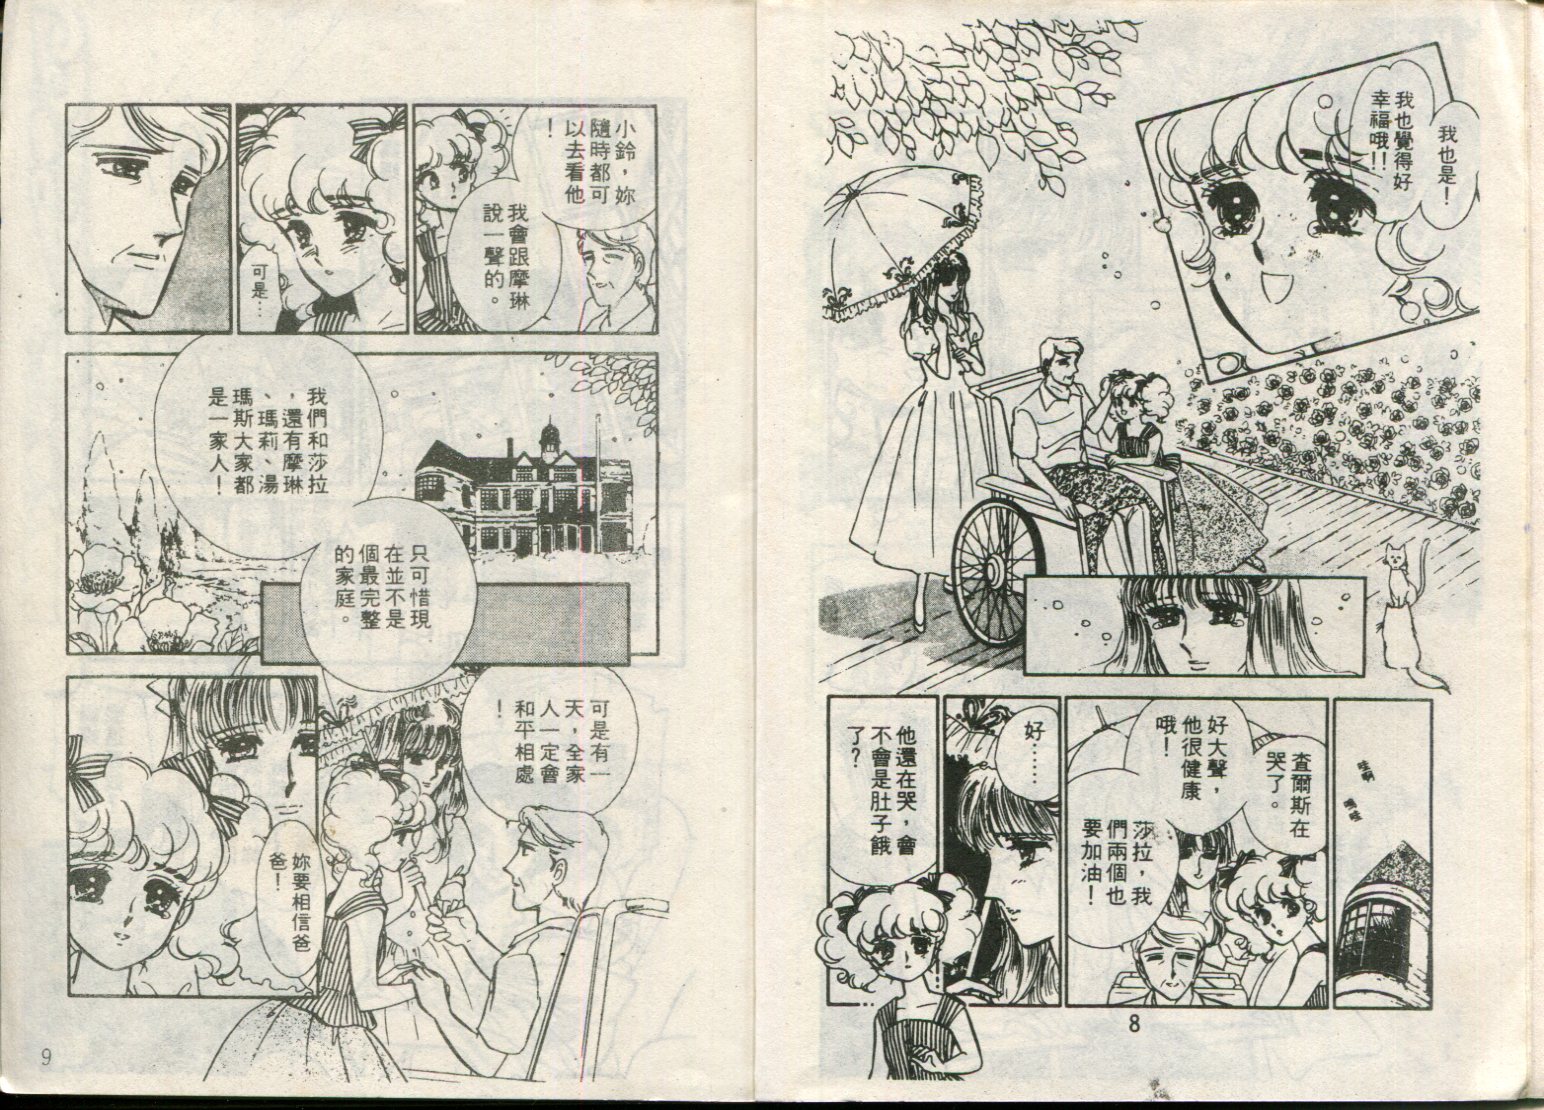 我也是！
我也覺得好
幸福哦!!
哇啊
嗚哇
查爾斯在
哭了。
好大聲，
他很健康
哦！
莎拉，我
們兩個也
要加油！
好……
他還在哭，會
不會是肚子餓
了？
8
小鈴，妳
隨時都可
以去看他
！
我會跟摩琳
說一聲的。
可是…
我們和莎拉
，還有摩琳
、瑪莉、湯
瑪斯大家都
是一家人！
只可惜現
在並不是
個最完整
的家庭。
可是有一
天，全家
人一定會
和平相處
！
妳要相信爸
爸！
9